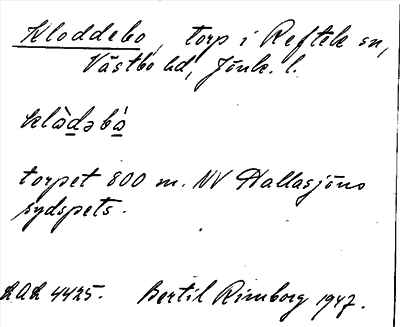 Kloddebo, torp i Reftele sn,
Västbo hd, Jönk. l.
klàdəbà
torpet 800 m. NV Hallasjöns
sydspets.
LAL 4425. Bertil Rimborg 1947.